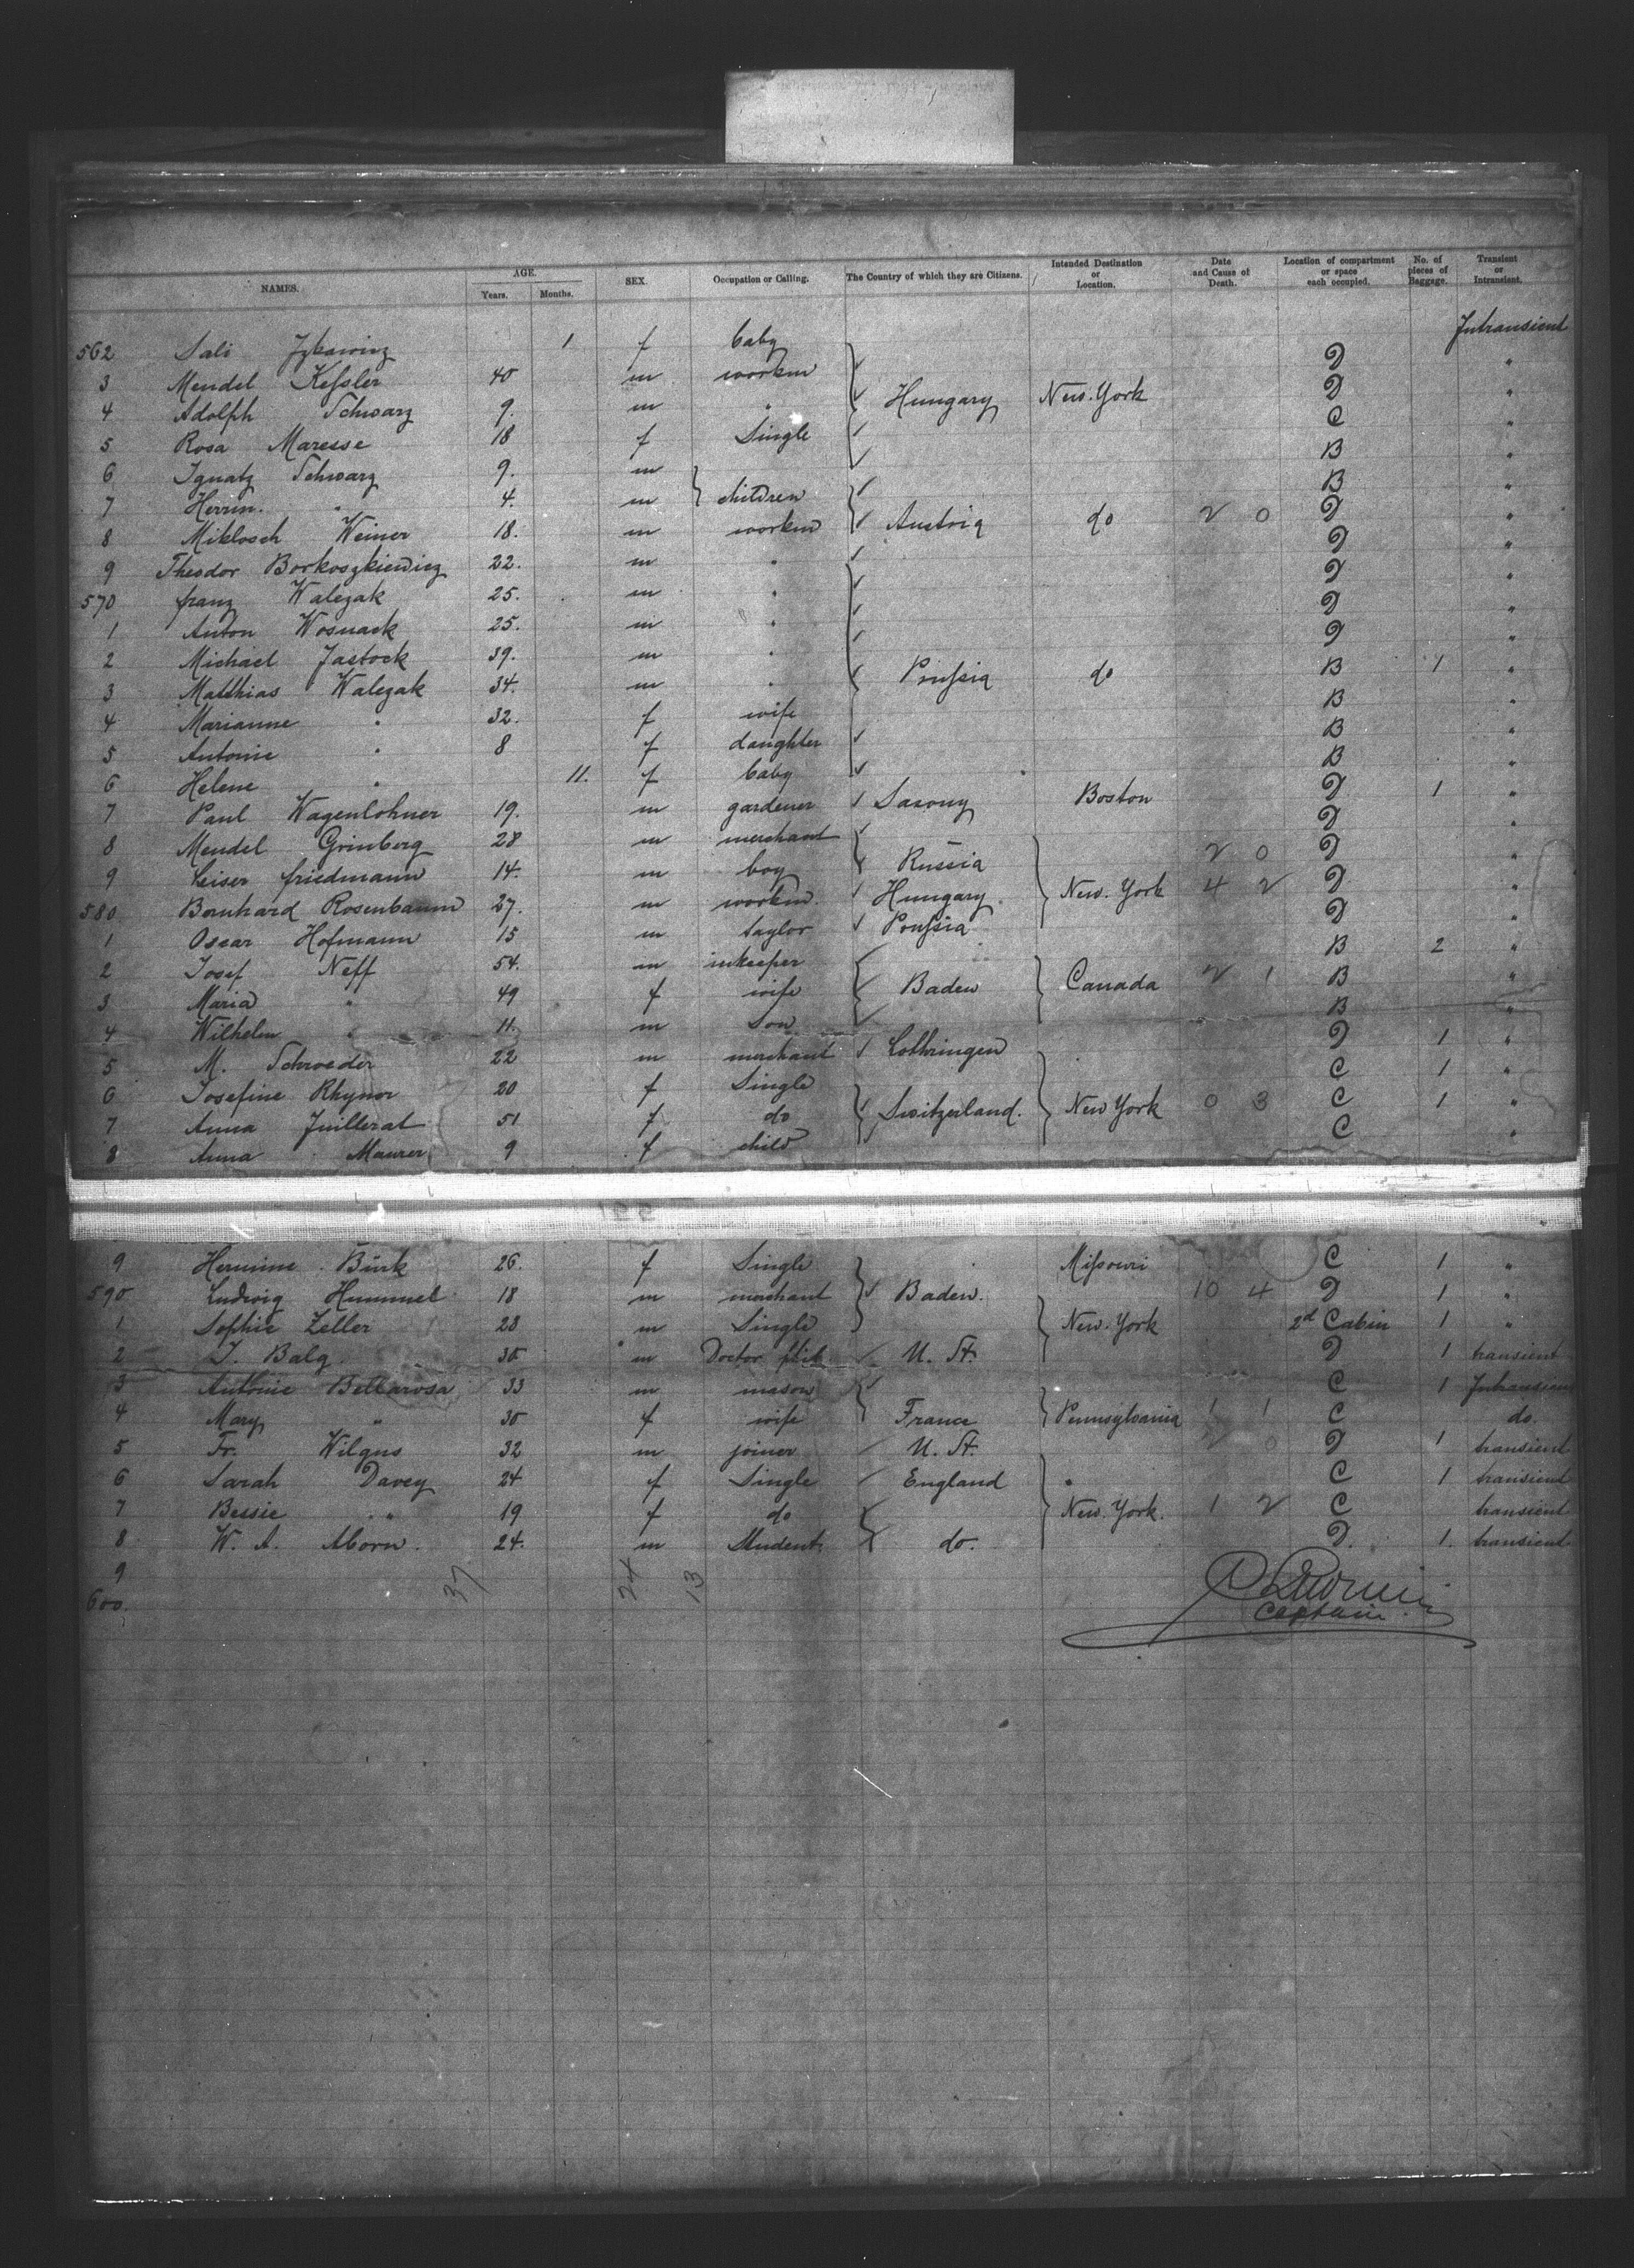 NAMES. AGE. Years. Months. SEX. Occupation or Calling. The Country of which they are Citizens. Intended Destination or Location. Date and Cause of Death. Location of compartment or space each occupied. No. of pieces of Baggage. Transient or Intransient.
562 Sali Izkawicz 1 f baby Intransient
3 Mendel Keſsler 40 m workm D "
4 Adolph Schwarz 9. m " Hungary New-York D "
5 Rosa Maresse 18 f Single C "
6 Ignatz Schwarz 9. m B "
7 Herm. " 4. m children B "
8 Miklosch Weiner 18. m workm Austria do 2 0 D "
9 Theodor Borkoszkiewicz 22. m " D "
570 franz Walezak 25. m " D "
1 Anton Wosnack 25. m " D "
2 Michael Jastock 39. m " D "
3 Matthias Walezak 34. m " Pruſsia do B 1 "
4 Marianne " 32. f wife B "
5 Antonie " 8 f daughter B "
6 Helene " 11. f baby B "
7 Paul Wagenlohner 19. m gardener Saxony Boston D 1 "
8 Mendel Grinberg 28 m merchant D "
9 Leiser friedmann 14. m boy Russia 2 0 D "
580 Bernhard Rosenbaum 27. m workm. Hungary New-York 4 2 D "
1 Oscar Hofmann 15 m taylor Pruſsia D "
2 Josef Neff 54. m inkeeper B 2 "
3 Maria " 49 f wife Baden Canada 2 1 B "
4 Wilhelm " 11. m Son B "
5 M. Schroeder 22 m merchant Lothringen D 1 "
6 Josefine Rhyner 20 f Single C 1 "
7 Anna Juillerat 51 f do Switzerland. New York 0 3 C 1 "
8 Anna Maurer 9 f child C "
9 Hermine Bürk 26. f Single Miſsouri C 1 "
590 Ludwig Hummel 18 m merchant Baden. 10 4 D 1 "
1 Sophie Zeller 23 m Single New-York 2d Cabin 1 "
2 J. Balg. 35 m Doctor U. St. D 1 transient
3 Antonie Bellarosa 33 m mason C 1 Intransient
4 Mary " 30 f wife France Pennsylvania 1 1 C do.
5 Fr. Wilgus 32 m joiner U. St. 2 0 D 1 transient
6 Sarah Davey 24 f Single England " C 1 transient
7 Bessie " 19 f do New-York. 1 2 C transient
8 W. A. Aborn. 24. m Student. do. D. 1. transient
9
600.
37 24 13
Captain